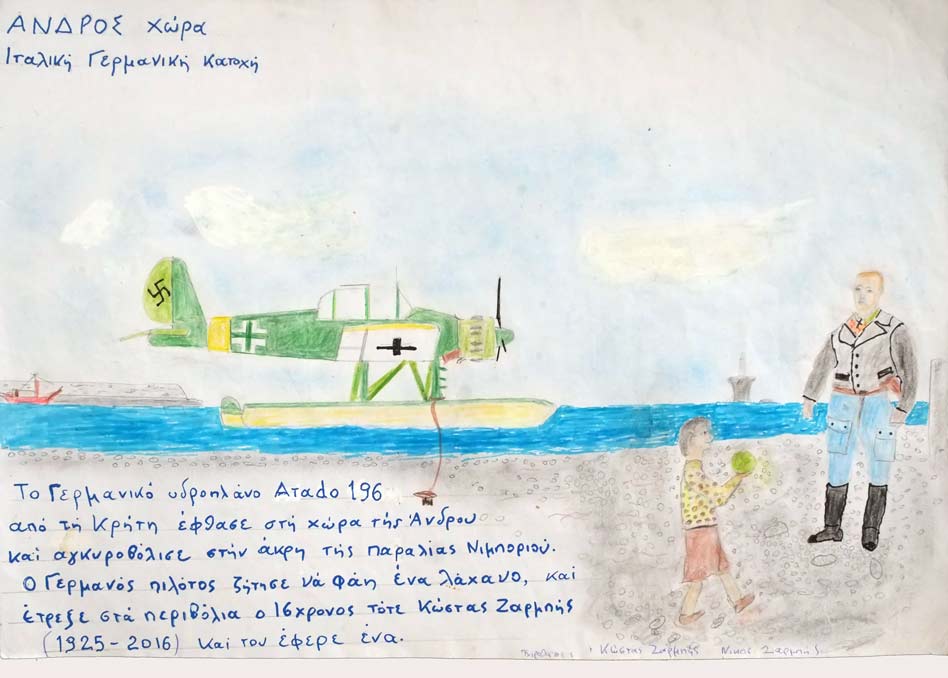 ΑΝΔΡΟΣ Χώρα
Ιταλική Γερμανική Κατοχή
Το Γερμανικό υδροπλάνο Arado 196
από τή Κρήτη έφθασε στή χώρα τής Άνδρου
καί αγκυροβόλισε στήν άκρη τής παραλίας Νιμποριού.
Ο Γερμανός πιλότος ζήτησε νά φάη ένα λάχανο, καί
έτρεξε στά περιβόλια ο 16χρονος τότε Κώστας Ζαρμπής
(1925-2016) καί του έφερε ένα.
Κώστας Ζαρμπής Νίκος Ζαρμπής